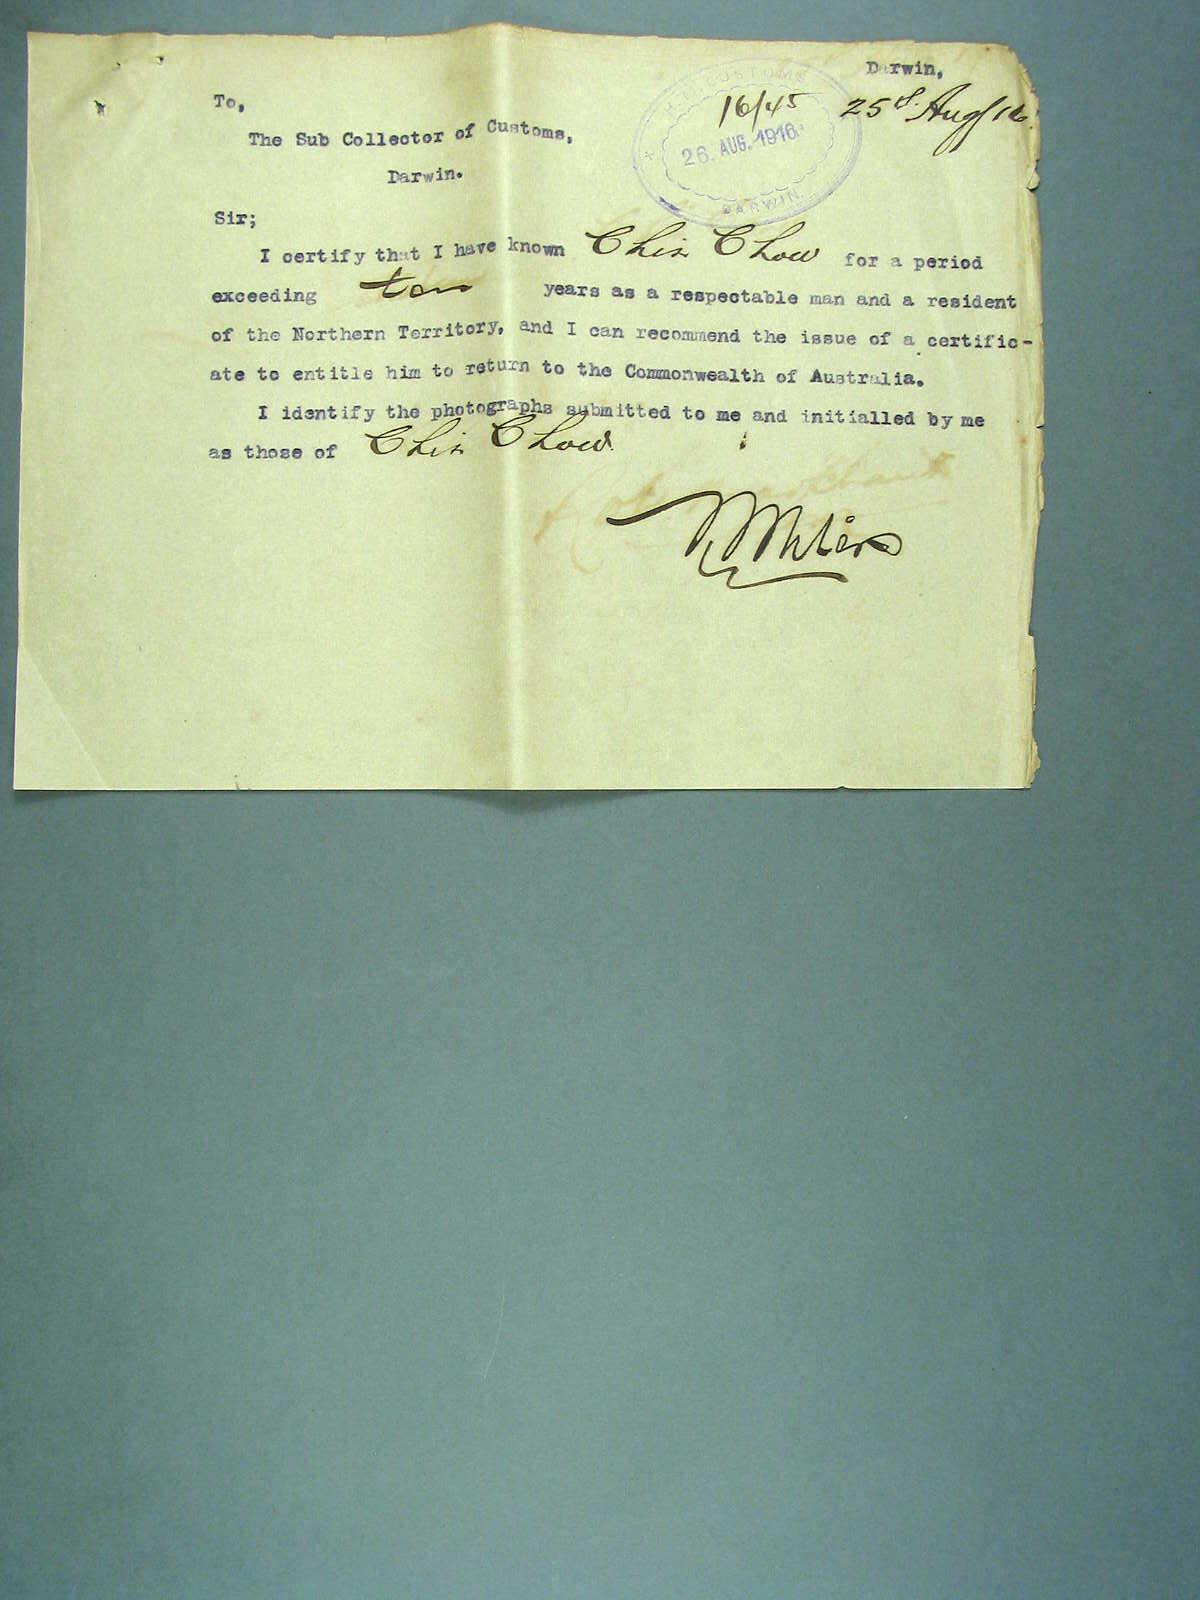 Darwin,
16/45 25th Aug/16
H.M. CUSTOMS
26. AUG. 1916
DARWIN
To,
The Sub Collector of Customs,
Darwin.
Sir;
I certify that I have known Chin Chow for a period
exceeding ten years as a respectable man and a resident
of the Northern Territory, and I can recommend the issue of a certific-
ate to entitle him to return to the Commonwealth of Australia.
I identify the photographs submitted to me and initialled by me
as those of Chin Chow